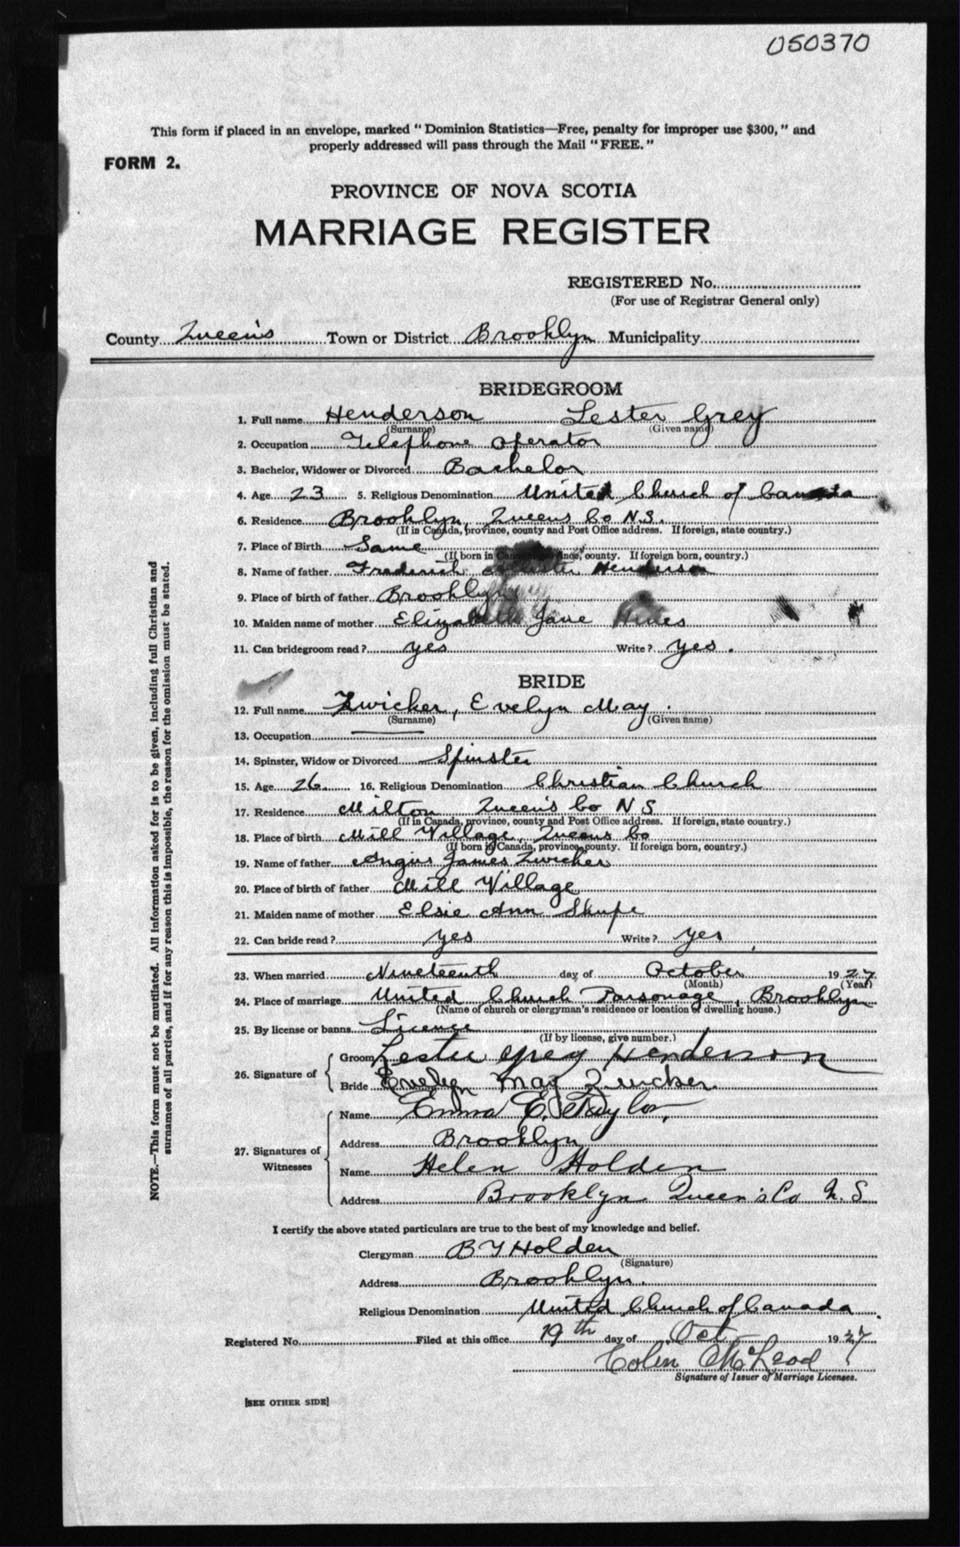 050370
This form if placed in an envelope, marked "Dominion Statistics—Free, penalty for improper use $300," and
properly addressed will pass through the Mail "FREE."
FORM 2.
PROVINCE OF NOVA SCOTIA
MARRIAGE REGISTER
REGISTERED No.
(For use of Registrar General only)
County Queen's Town or District Brooklyn Municipality
BRIDEGROOM
1. Full name Henderson Lester Grey
(Surname) (Given name)
2. Occupation Telephone operator
3. Bachelor, Widower or Divorced Bachelor
4. Age 23 5. Religious Denomination United Church of Canada
6. Residence Brooklyn, Queens Co N.S.
(If in Canada, province, county and Post Office address. If foreign, state country.)
7. Place of Birth Same
(If born in Canada, province, county. If foreign born, country.)
8. Name of father Frederick Henderson
9. Place of birth of father Brooklyn
10. Maiden name of mother Elizabeth Jane
11. Can bridegroom read? yes Write? yes.
BRIDE
12. Full name Zwicker, Evelyn May.
(Surname) (Given name)
13. Occupation
14. Spinster, Widow or Divorced Spinster
15. Age 26. 16. Religious Denomination Christian Church
17. Residence Milton Queen's Co N S
(If in Canada, province, county and Post Office address. If foreign, state country.)
18. Place of birth Mill Village, Queens Co
(If born in Canada, province, county. If foreign born, country.)
19. Name of father Angus James Zwicker
20. Place of birth of father Mill Village
21. Maiden name of mother Elsie Ann Shupe
22. Can bride read? yes Write? yes
23. When married Nineteenth day of October 1927.
(Month) (Year)
24. Place of marriage United Church Parsonage, Brooklyn
(Name of church or clergyman's residence or location of dwelling house.)
25. By license or banns Licence
(If by license, give number.)
26. Signature of
Groom Lester Grey Henderson
Bride Evelyn May Zwicker.
27. Signatures of Witnesses
Name Emma E. Taylor.
Address Brooklyn
Name Helen Holden
Address Brooklyn Queen's Co N. S
I certify the above stated particulars are true to the best of my knowledge and belief.
Clergyman B Y Holden
(Signature)
Address Brooklyn.
Religious Denomination United Church of Canada.
Registered No. Filed at this office 19th day of Oct 1927
Colin McLeod
Signature of Issuer of Marriage Licenses.
[SEE OTHER SIDE]
NOTE.—This form must not be mutilated. All information asked for is to be given, including full Christian and
surnames of all parties, and if for any reason this is impossible, the reason for the omission must be stated.